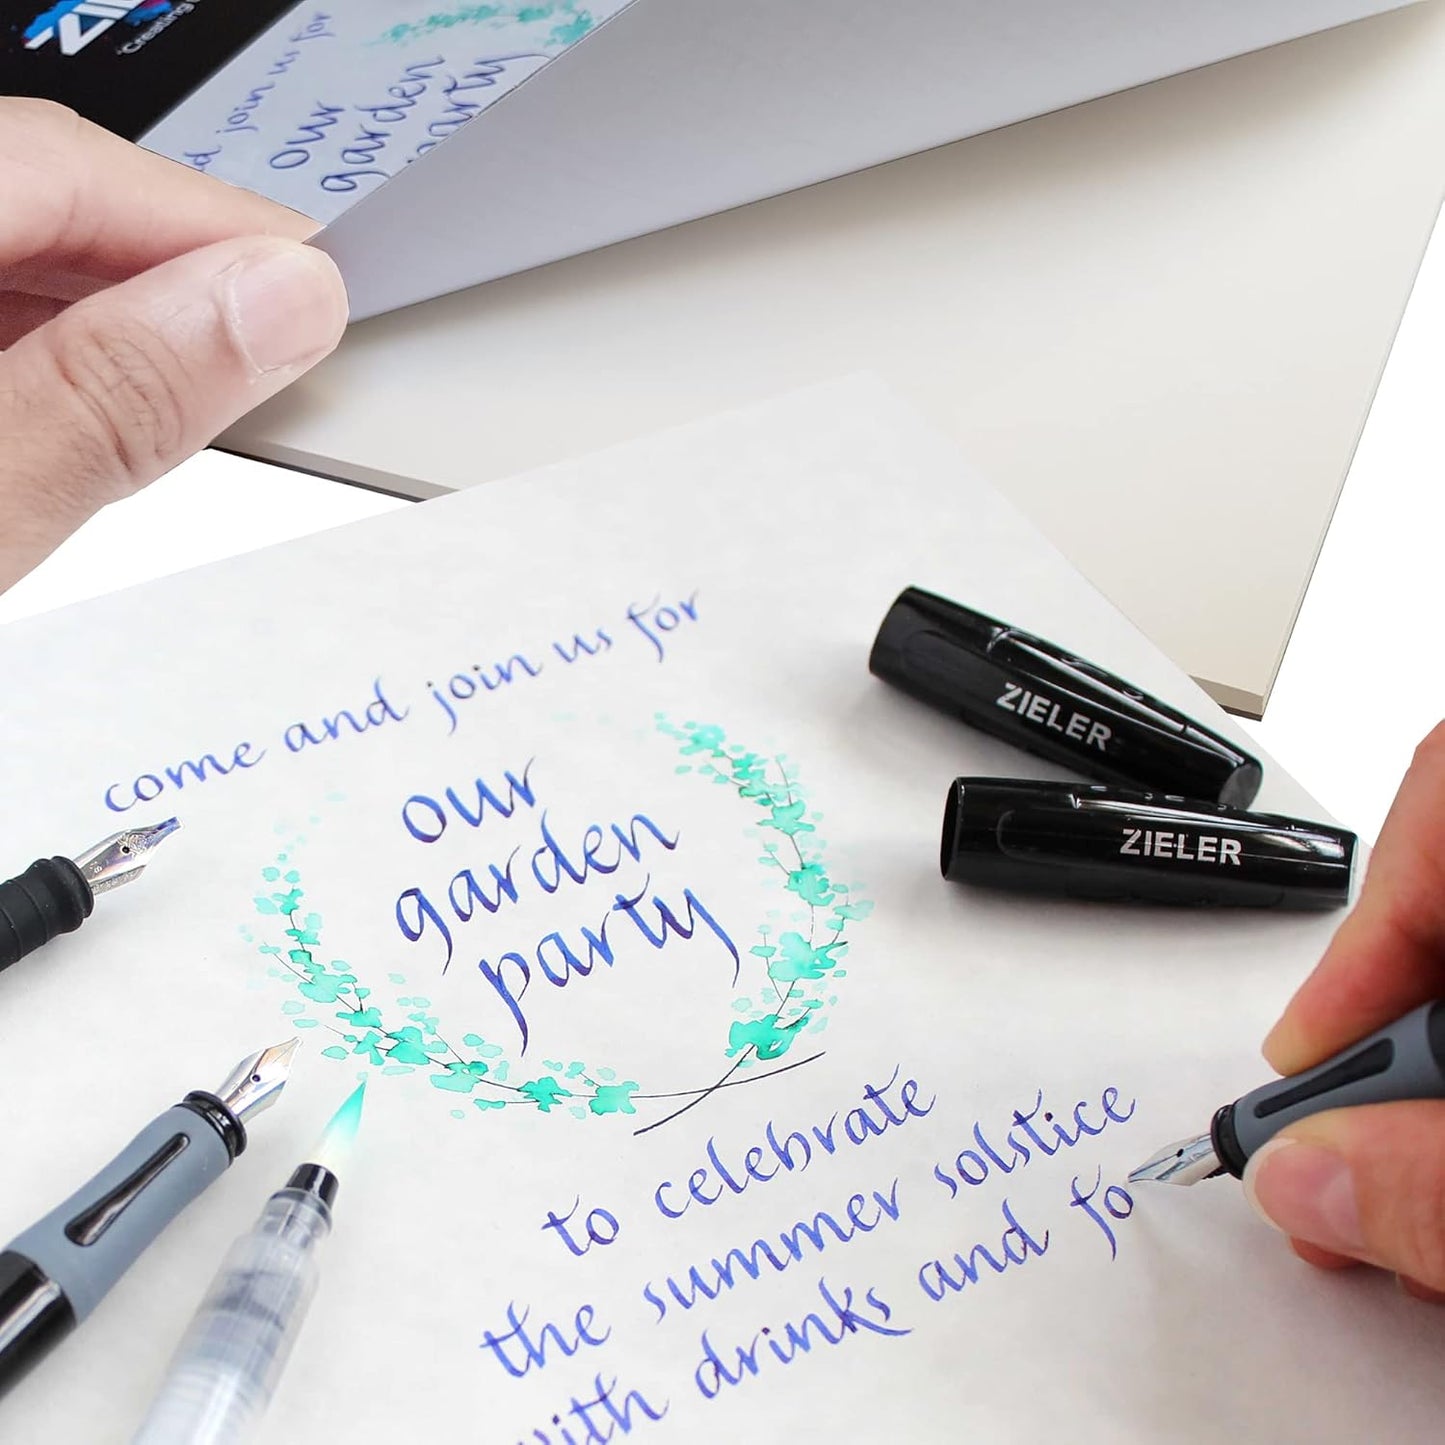 'Creating
join us for
our
garden
party
come and join us for
our
garden
party
to celebrate
the summer solstice
with drinks and fo
ZIELER
ZIELER